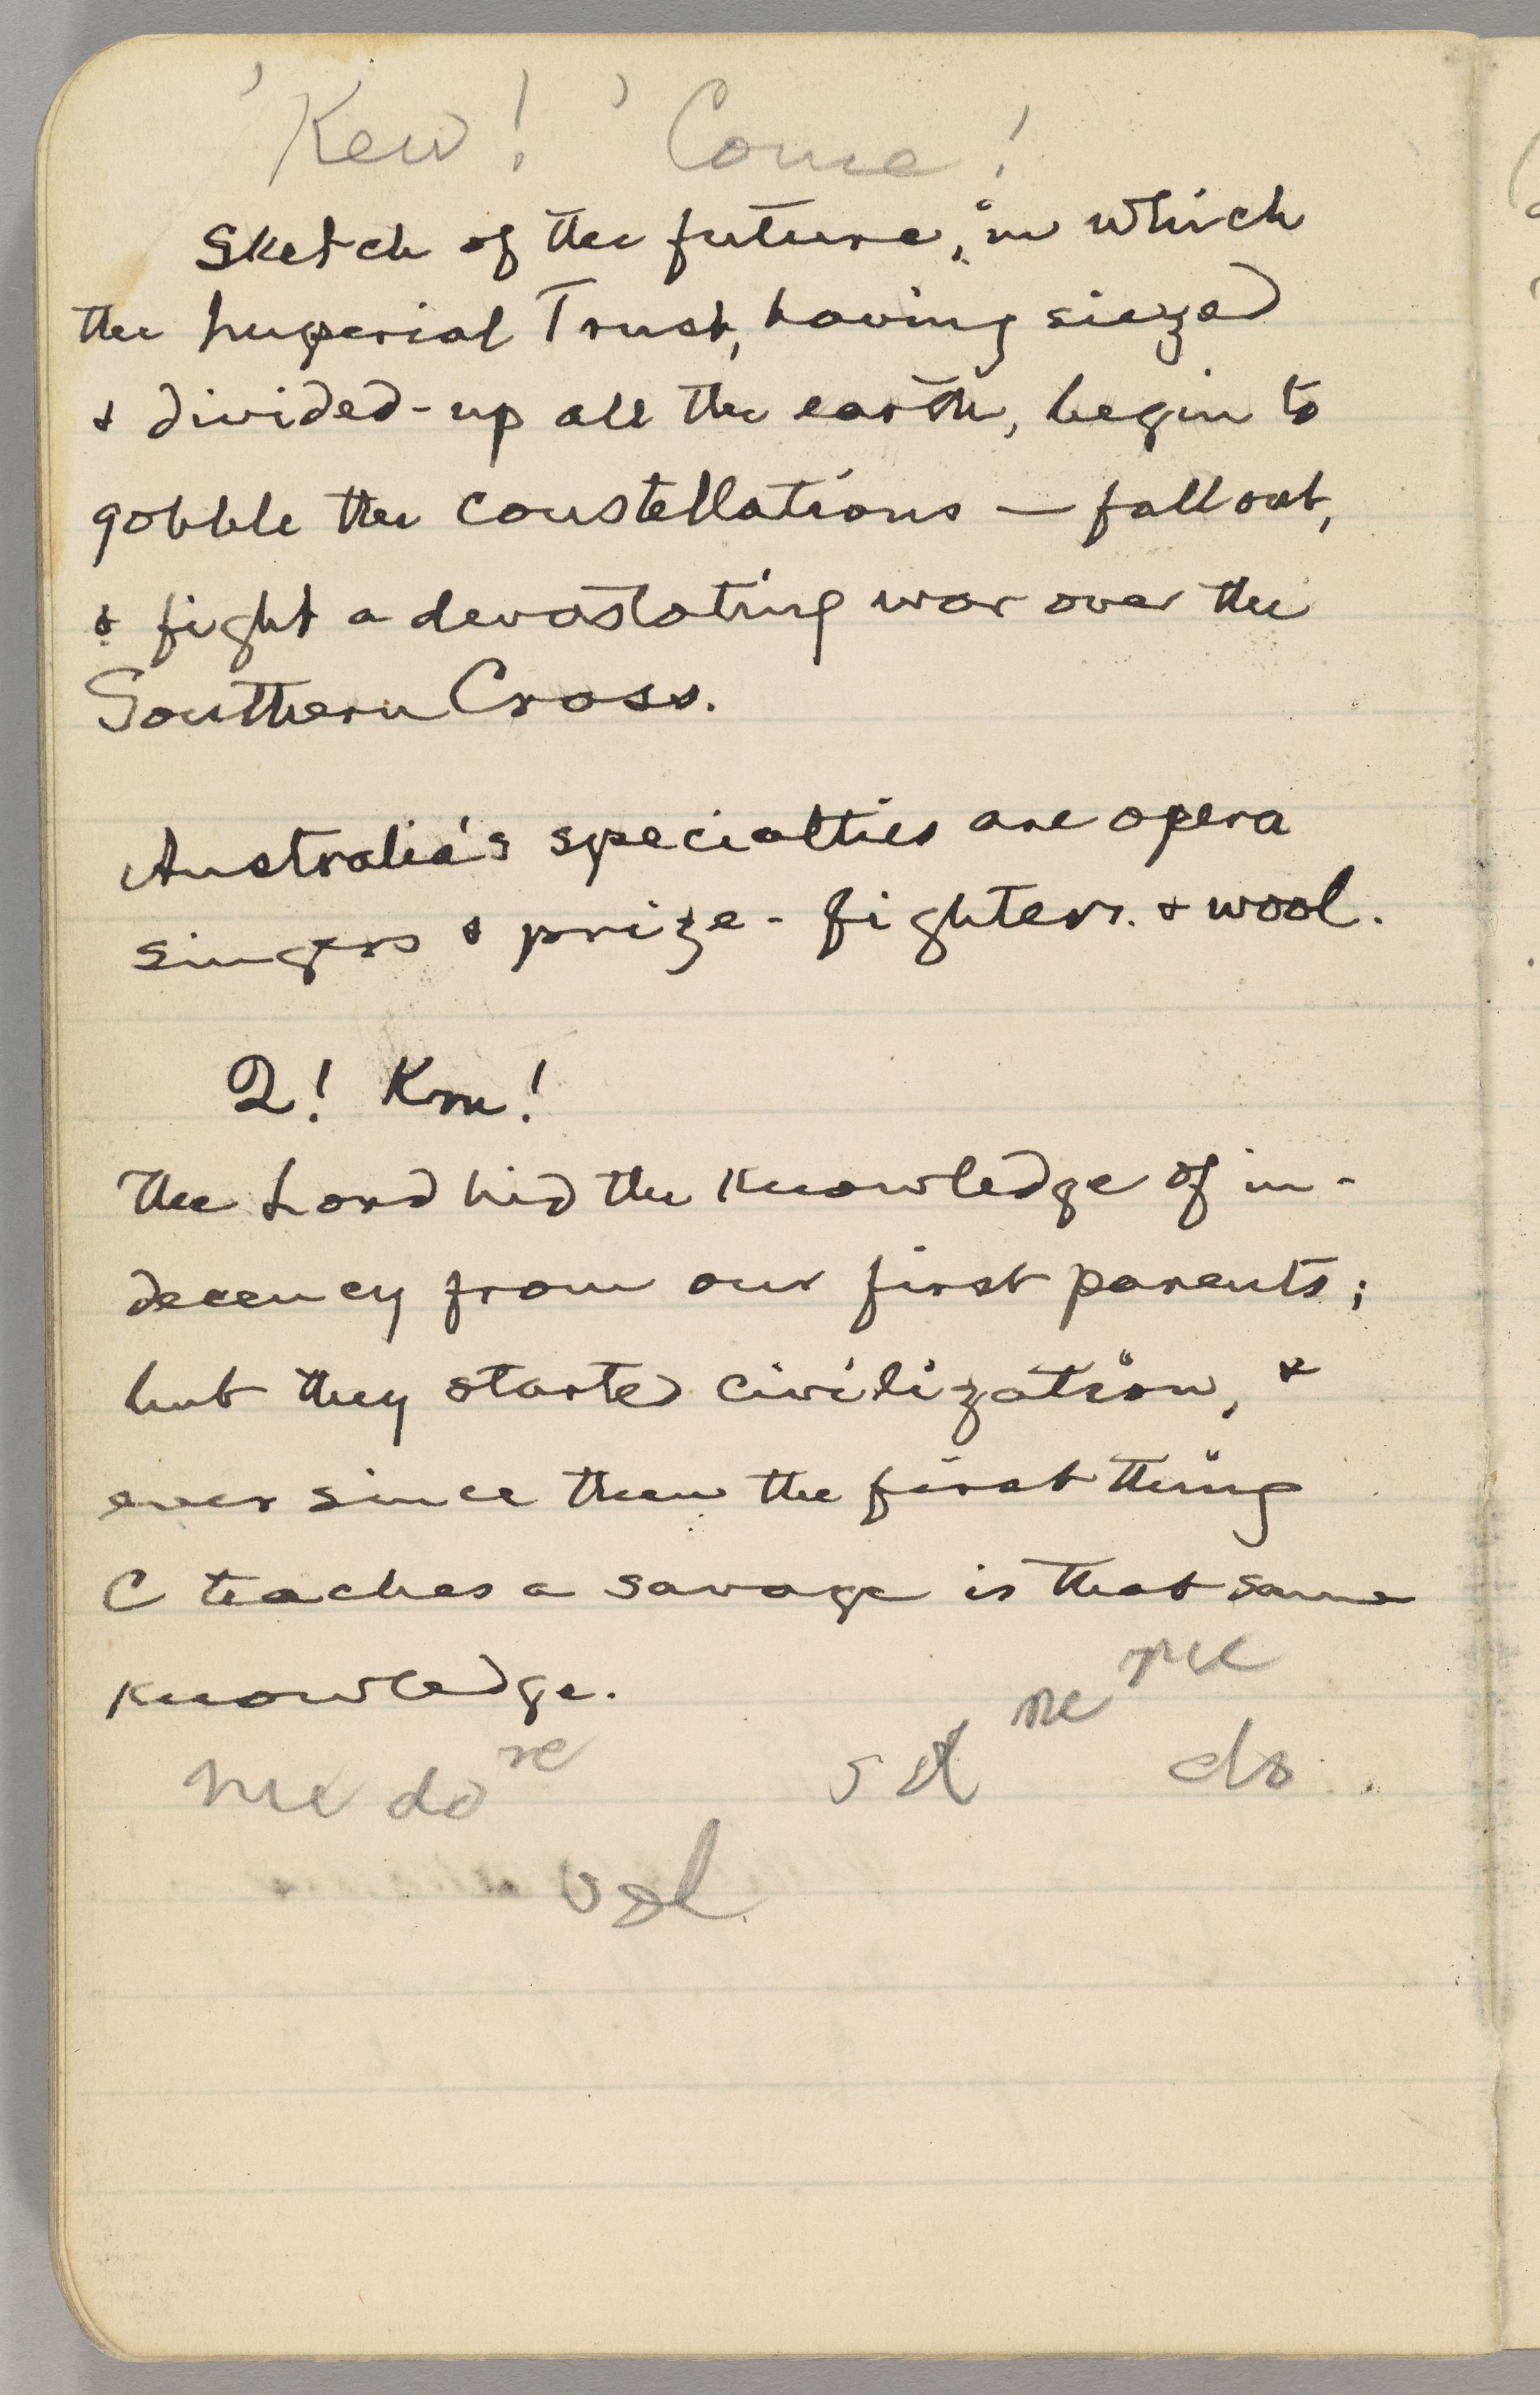 'Kew! 'Come!
Sketch of the future, in which
the Imperial Trust, having siezed
& divided-up all the earth, begin to
gobble the constellations — fall out,
& fight a devastating war over the
Southern Cross.
Australia's specialties are opera
singers & prize-fighters. & wool.
Q! Km!
The Lord hid the knowledge of in-
decency from our first parents;
but they started civilization, &
ever since then the first thing
C teaches a savage is that same
knowledge.
me
re
me do re
sol do
sol